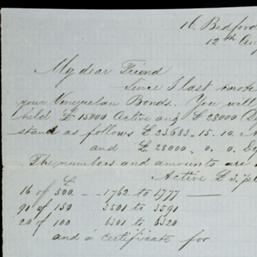 16. Bedford
12th Au
My dear Friend
Since I last wrote
your Venezuelan Bonds. You will
held £15000 Active and £28000 D
stand as follows £23683.15.10
and £28000. 0. 0. De
The numbers and amounts are
Active £3.p
16 of 500 — 1762 to 1777 —
91 of 150 3501 to 3591
20 of 100 6301 to 6320
and a certificate for